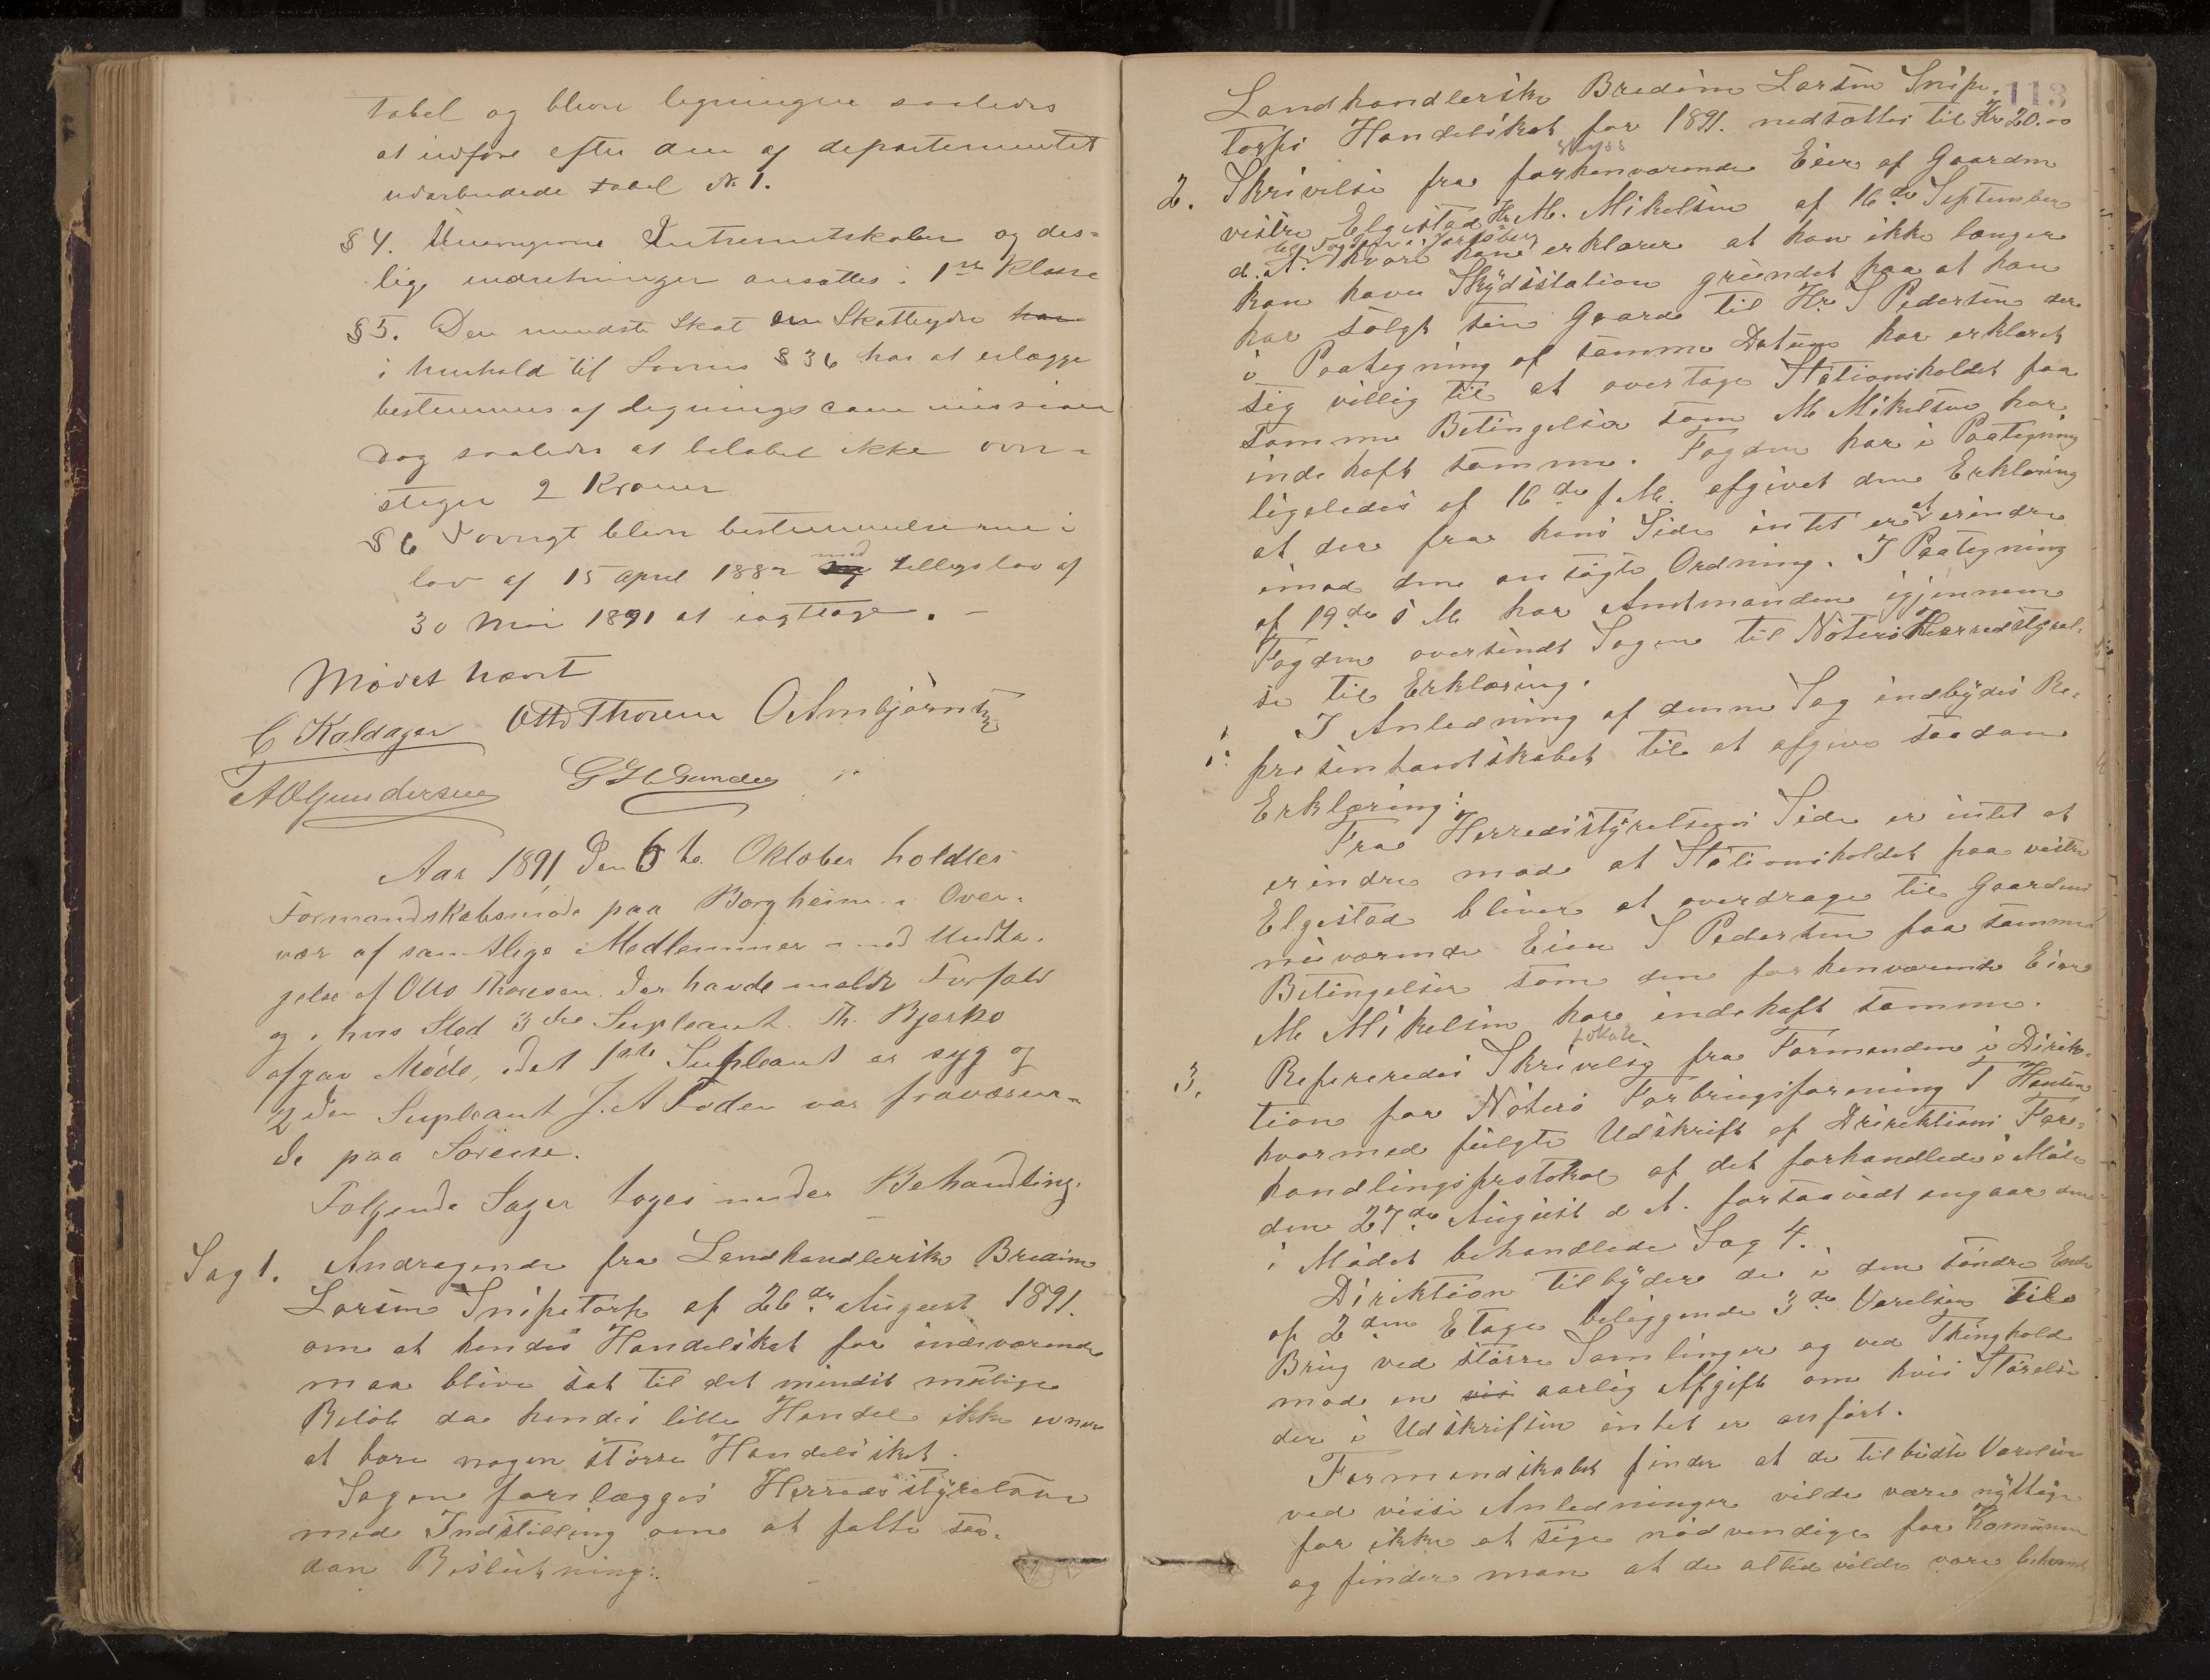 tabel og blive ligningen saaledes
at udføre efter den af departementet
udarbeidede tabel № 1.
§ 4. Interessentskaber og des=
lige indretninger ansættes i 1ste Klasse
§ 5. Den mindste Skat en Skatteyder har
i henhold til Lovens § 36 har at erlægge
bestemmes af Ligningscommissionen
dog saaledes at beløbet ikke over=
stiger 2 Kroner
§ 6 I øvrigt blive bestemmelserne i
lov af 15 April 1882 med tillægslov af
30 Mai 1891 at iagttage. —
Mødet hævet
C Kaldager Otto Thoresen O Arnbjørnsen
A O Gundersen G H Gunder
Aar 1891, den 6te Oktober holdtes
Formandskabsmøde paa Borgheim i Over=
vær af samtlige Medlemmer med Undta=
gelse af Otto Thoresen der havde meldt Forfald
og i hvis Sted 3die Supleant Th. Bjerkø
afgav Møde, idet 1ste Supleant er syg og
2den Supleant J. A Foden var fraværen=
de paa Søreise.
Følgende Sager toges under Behandling.
Sag 1. Andragende fra Landhandlerske Bredine
Larsen Snipetorp af 26de August 1891.
om at hendes Handelskat for indeværende
maa blive sat til det mindst mulige
Beløb da hendes lille Handel ikke evner
at bære nogen større Handelsskat.
Sagen forelægges Herredsstyrelsen
med Indstilling om at fatte saa=
dan Beslutning:
113
Landhandlerske Bredine Larsen Snipe=
torps Handelskat for 1891. nedsættes til Kr 20.00
skyss
2. Skrivelse fra forhenværende Eier af Gaarden
vestre Elgestad Hr M. Mikelsen af 16de September
til Fogden i Jarlsberg
d. A. hvori han erklærer at han ikke længer
kan have Skydsstation grundet paa at han
har solgt sin Gaard til Hr. S Pedersen der
i Paategning af samme Datum har erklæret
sig villig til at overtage Stationsholdet paa
samme Betingelser som M Mikelsen har
indehaft samme. Fogden har i Paategning
ligeledes af 16de f. M. afgivet den Erklæring
at der fra hans Side intet er at erindre
imod den ansøgte Ordning. I Paategning
af 19de s M har Amtmanden igjennem
Fogden oversendt Sagen til Nøterø Herredsstyrel=
se til Erklæring.
I Anledning af denne Sag indbydes Re=
præsentantskabet til at afgive saadan
Erklæring:
Fra Herredsstyrelsens Side er intet at
erindre mod at Stationsholdet paa vestre
Elgestad bliver at overdrage til Gaardens
nuværende Eier S Pedersen paa samme
Betingelser som den forhenværende Eier
M Mikelsen har indehaft samme.
lokale
3. Refereredes Skrivelse fra Formanden i Direk=
tion for Nøterø Forbrugsforening T Hansen
hvormed fulgte Udskrift af Direktions For=
handlingsprotokol af det forhandlede i Møde
den 27de August d A. forsaavidt angaar den
i Mødet behandlede Sag 4.
Direktion tilbyder de i den søndre Ende
af 2den Etage beliggende 3de Værelser til
Brug ved større Samlinger og ved Thinghold
mod en vis aarlig Afgift om hvis Størelse
der i Udskriften intet er anført.
Formandskabet finder at de tilbudte Værelser
ved visse Anledninger vilde være nyttige
for ikke at sige nødvendige for Komunen
og finder man at de altid vilde være bekvemt